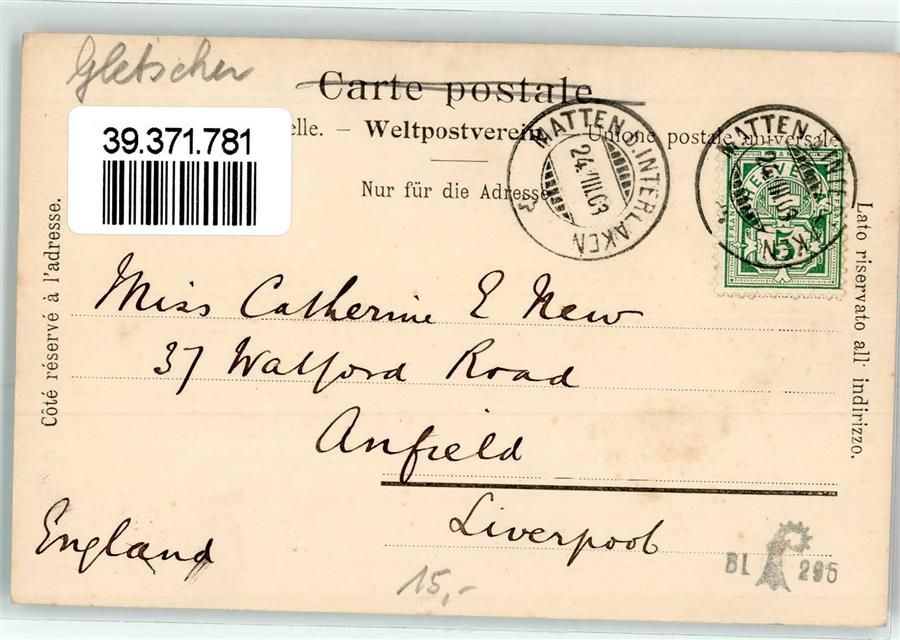 Gletscher
Carte postale
39.371.781
elle. – Weltpostverein. Unione postale universale
Nur für die Adresse
MATTEN b. INTERLAKEN
24.VIII.03
MATTEN
5
Côté réservé à l'adresse.
Lato riservato all' indirizzo.
Miss Catherine E New
37 Walford Road
Anfield
Liverpool
England
15,-
BL 295